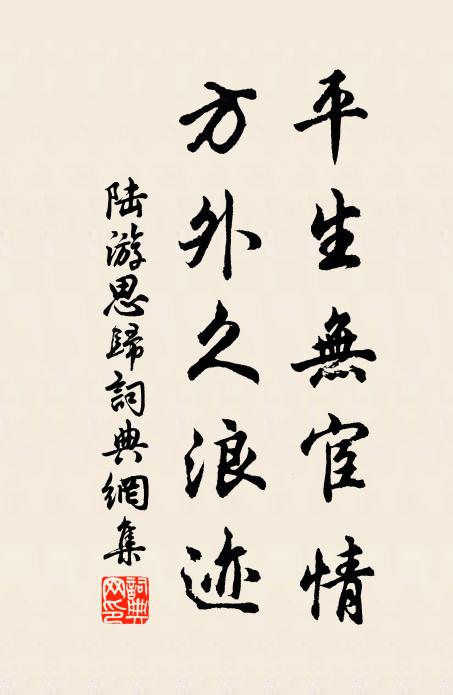 平生無宦情
方外久浪迹
陆游思歸詞典網集
詞典網印